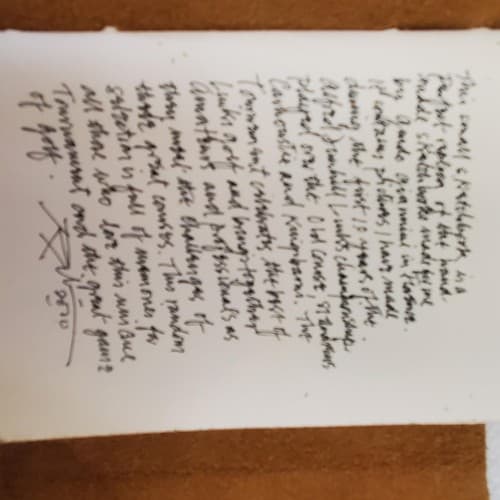 This small sketchbook is a
perfect replica of the hand
made sketchbooks made for me
by Guido Giannini in Florence.
It contains pictures I have made
during the first 10 years of the
Alfred Dunhill Links Championship
played over the Old Course, St Andrews
Carnoustie and Kingsbarns. The
Tournament celebrates the best of
Links golf and brings together
amateurs and professionals as
they meet the challenges of
these great courses. This random
selection is full of memories for
all those who love this unique
Tournament and the great game
of golf.
2010